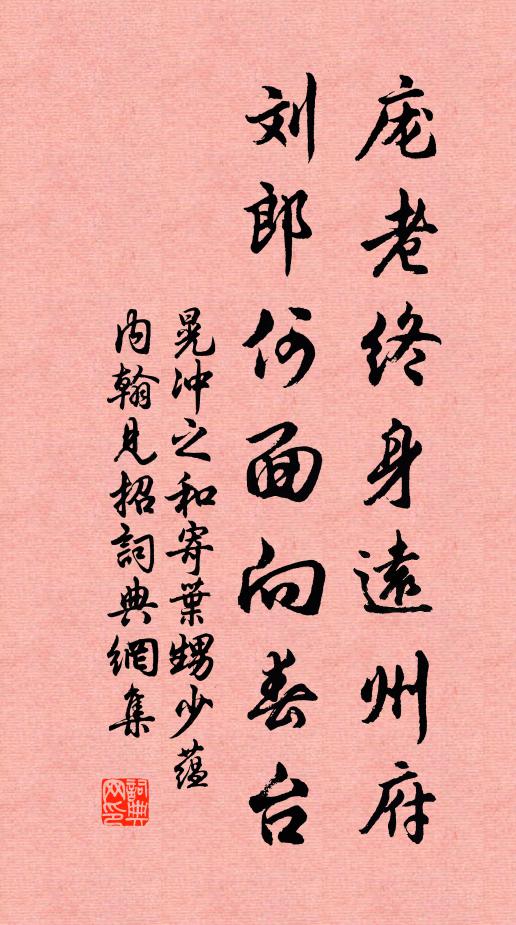 庞老终身遠州府
刘郎何面向春台
晁冲之和寄葉甥少蕴
内翰見招詞典網集
詞典网印